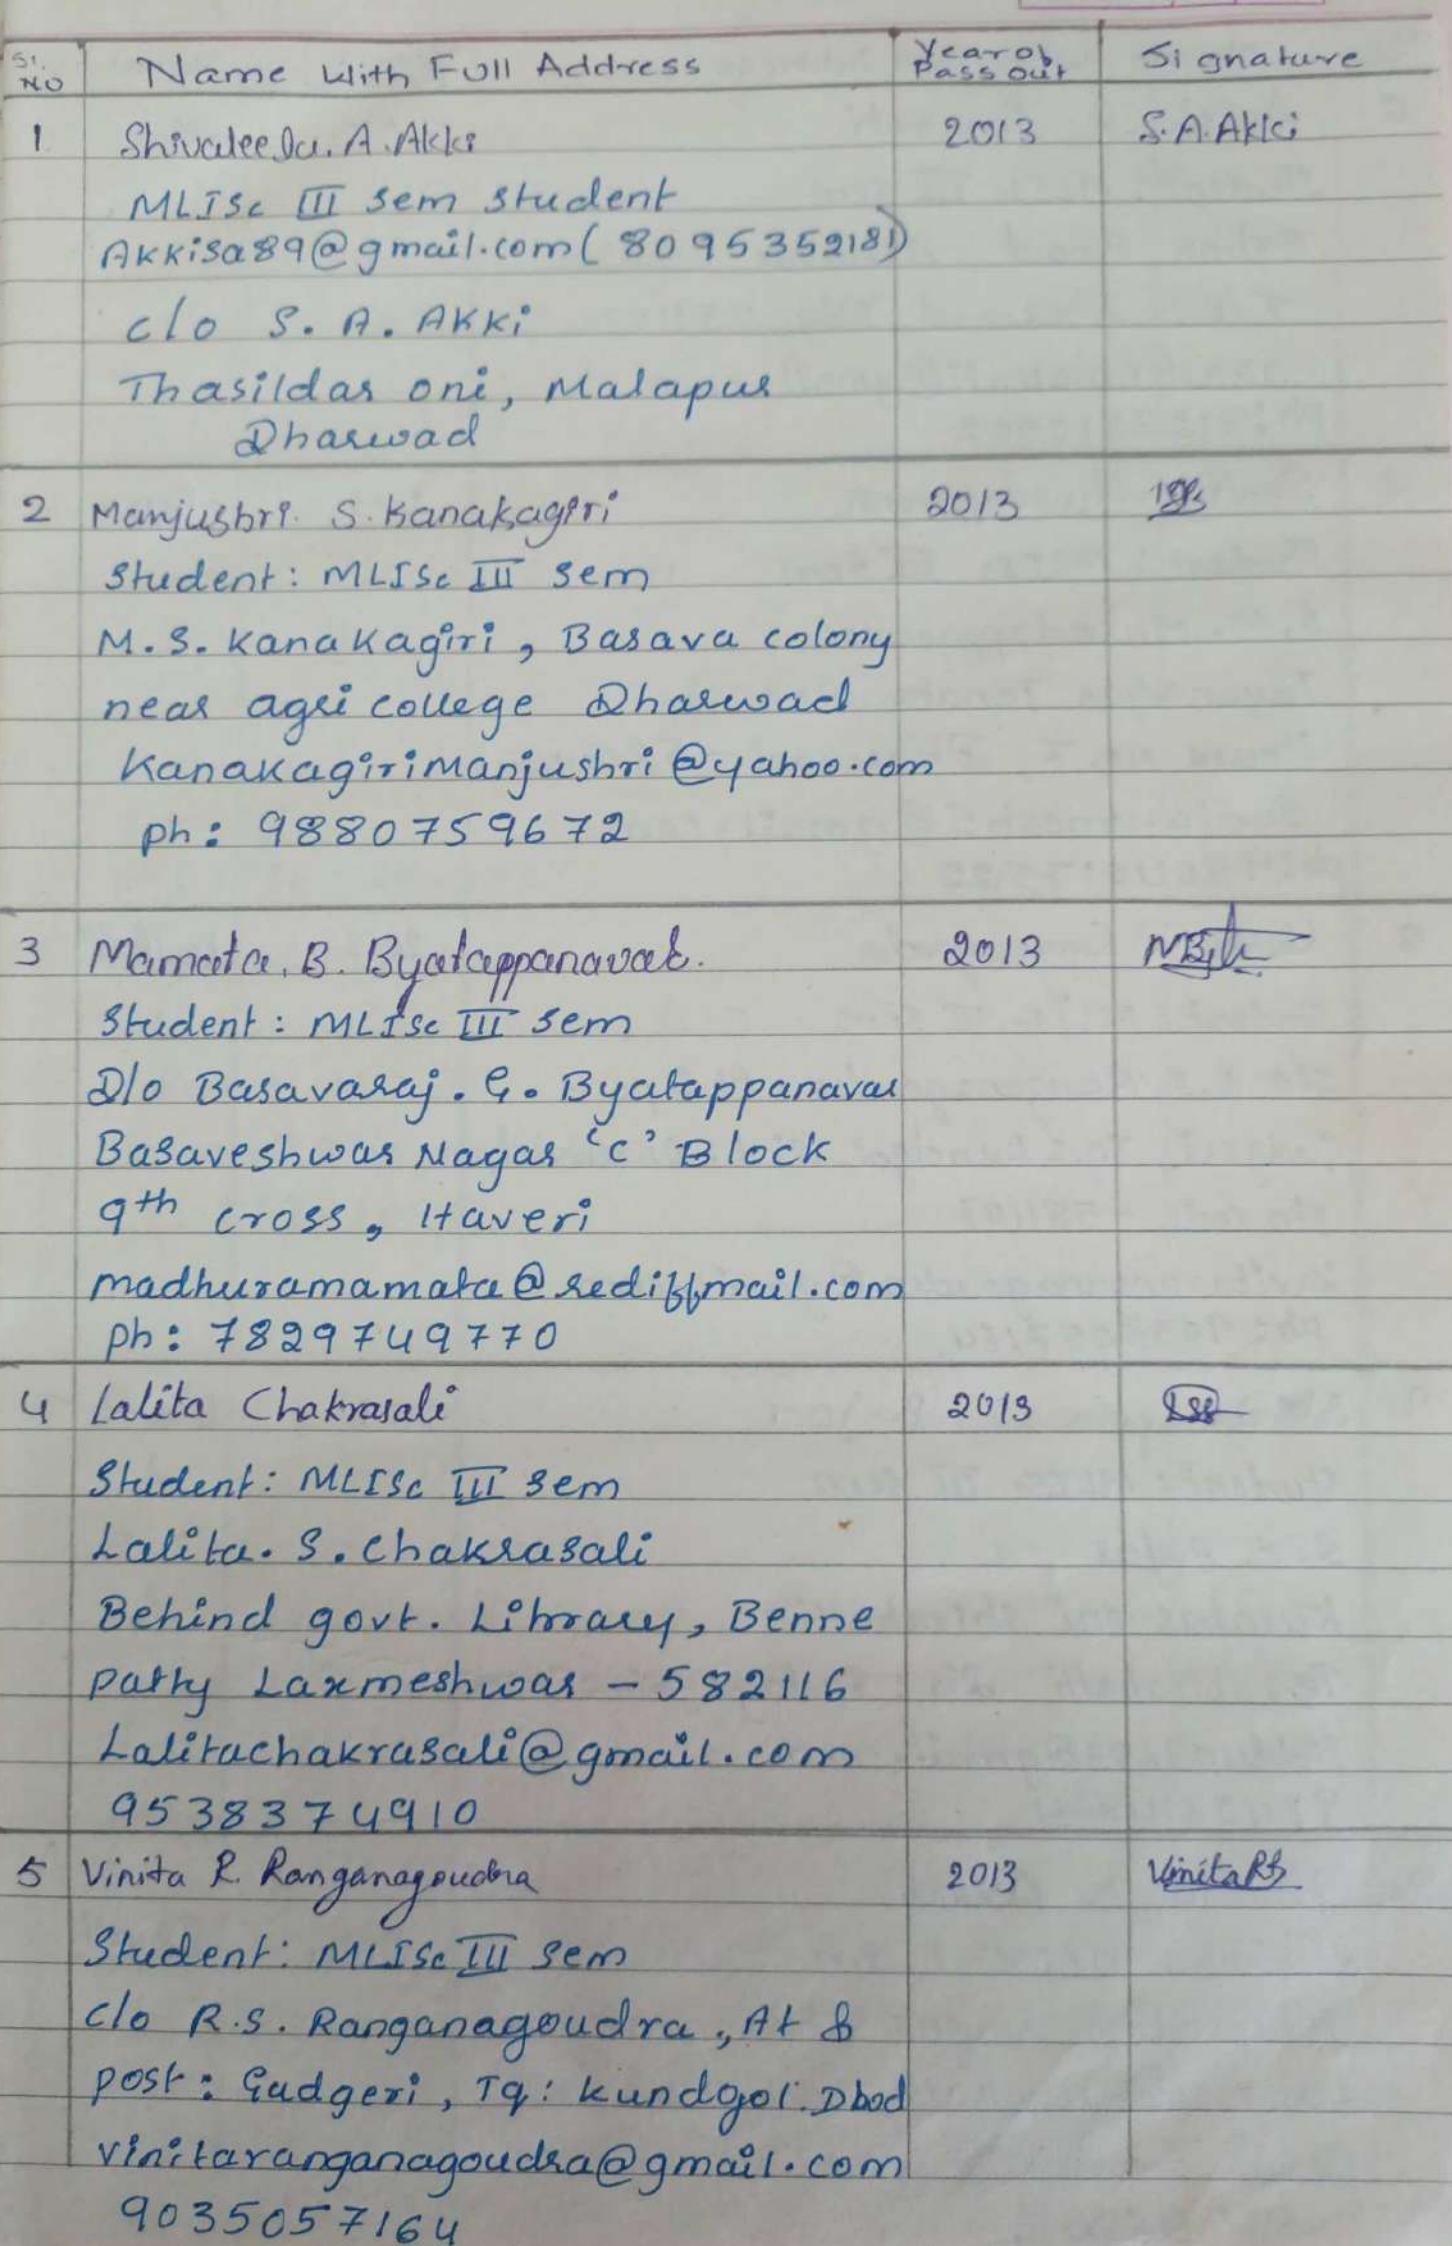 Sl. NO Name With Full Address Year of Pass out Signature
1 Shivaleela. A. Akki 2013 S.A.Akki
MLISc III sem student
Akkisa89@gmail.com (8095352181)
c/o S. A. Akki
Thasildar oni, Malapur
Dharwad
2 Manjushri. S. Kanakagiri 2013
Student: MLISc III sem
M. S. Kanakagiri, Basava colony
near agri college Dharwad
Kanakagirimanjushri@yahoo.com
ph: 9880759672
3 Mamata. B. Byatappanavar. 2013
Student: MLISc III sem
D/o Basavaraj. G. Byatappanavar
Basaveshwar Nagar 'C' Block
9th cross, Haveri
madhuramamata@rediffmail.com
ph: 7829749770
4 Lalita Chakrasali 2013
Student: MLISc III sem
Lalita. S. Chakrasali
Behind govt. Library, Benne
patty Laxmeshwar - 582116
Lalitachakrasali@gmail.com
9538374910
5 Vinita R. Ranganagoudra 2013 VinitaRS
Student: MLISc III sem
c/o R.S. Ranganagoudra, At &
post: Gudgeri, Tq: Kundgol. Dbod
vinitaranganagoudra@gmail.com
9035057164